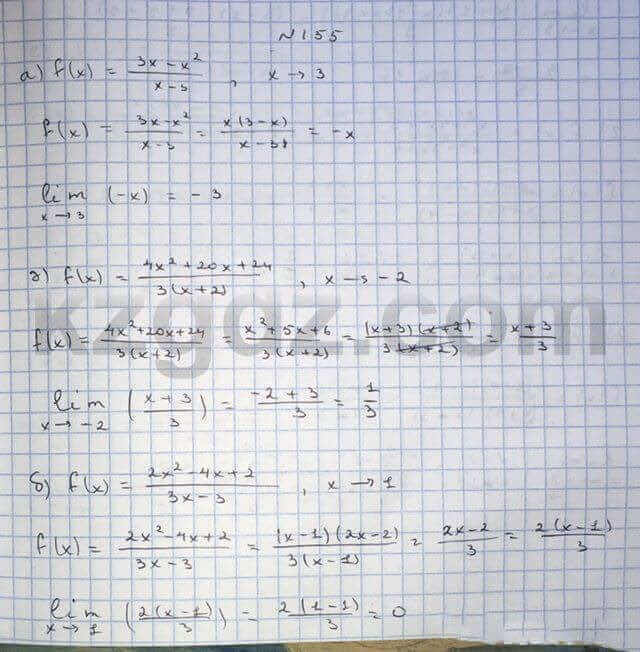 N155
а) f(x) = (3x - x²)/(x - 3) , x → 3
f(x) = (3x - x²)/(x - 3) = x(3 - x)/(x - 3) = -x
lim x → 3 (-x) = -3
в) f(x) = (4x² + 20x + 24)/(3(x + 2)) , x → -2
f(x) = (4x² + 20x + 24)/(3(x + 2)) = (x² + 5x + 6)/(3(x + 2)) = (x + 3)(x + 2)/(3(x + 2)) = (x + 3)/3
lim x → -2 ((x + 3)/3) = (-2 + 3)/3 = 1/3
б) f(x) = (2x² - 4x + 2)/(3x - 3) , x → 1
f(x) = (2x² - 4x + 2)/(3x - 3) = (x - 1)(2x - 2)/(3(x - 1)) = (2x - 2)/3 = 2(x - 1)/3
lim x → 1 (2(x - 1)/3) = 2(1 - 1)/3 = 0
kzgdz.com